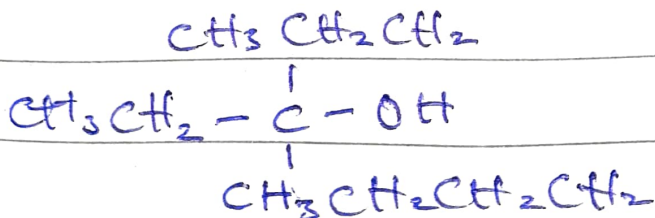 CH3 CH2 CH2
|
CH3 CH2 - C - OH
|
CH3 CH2 CH2 CH2